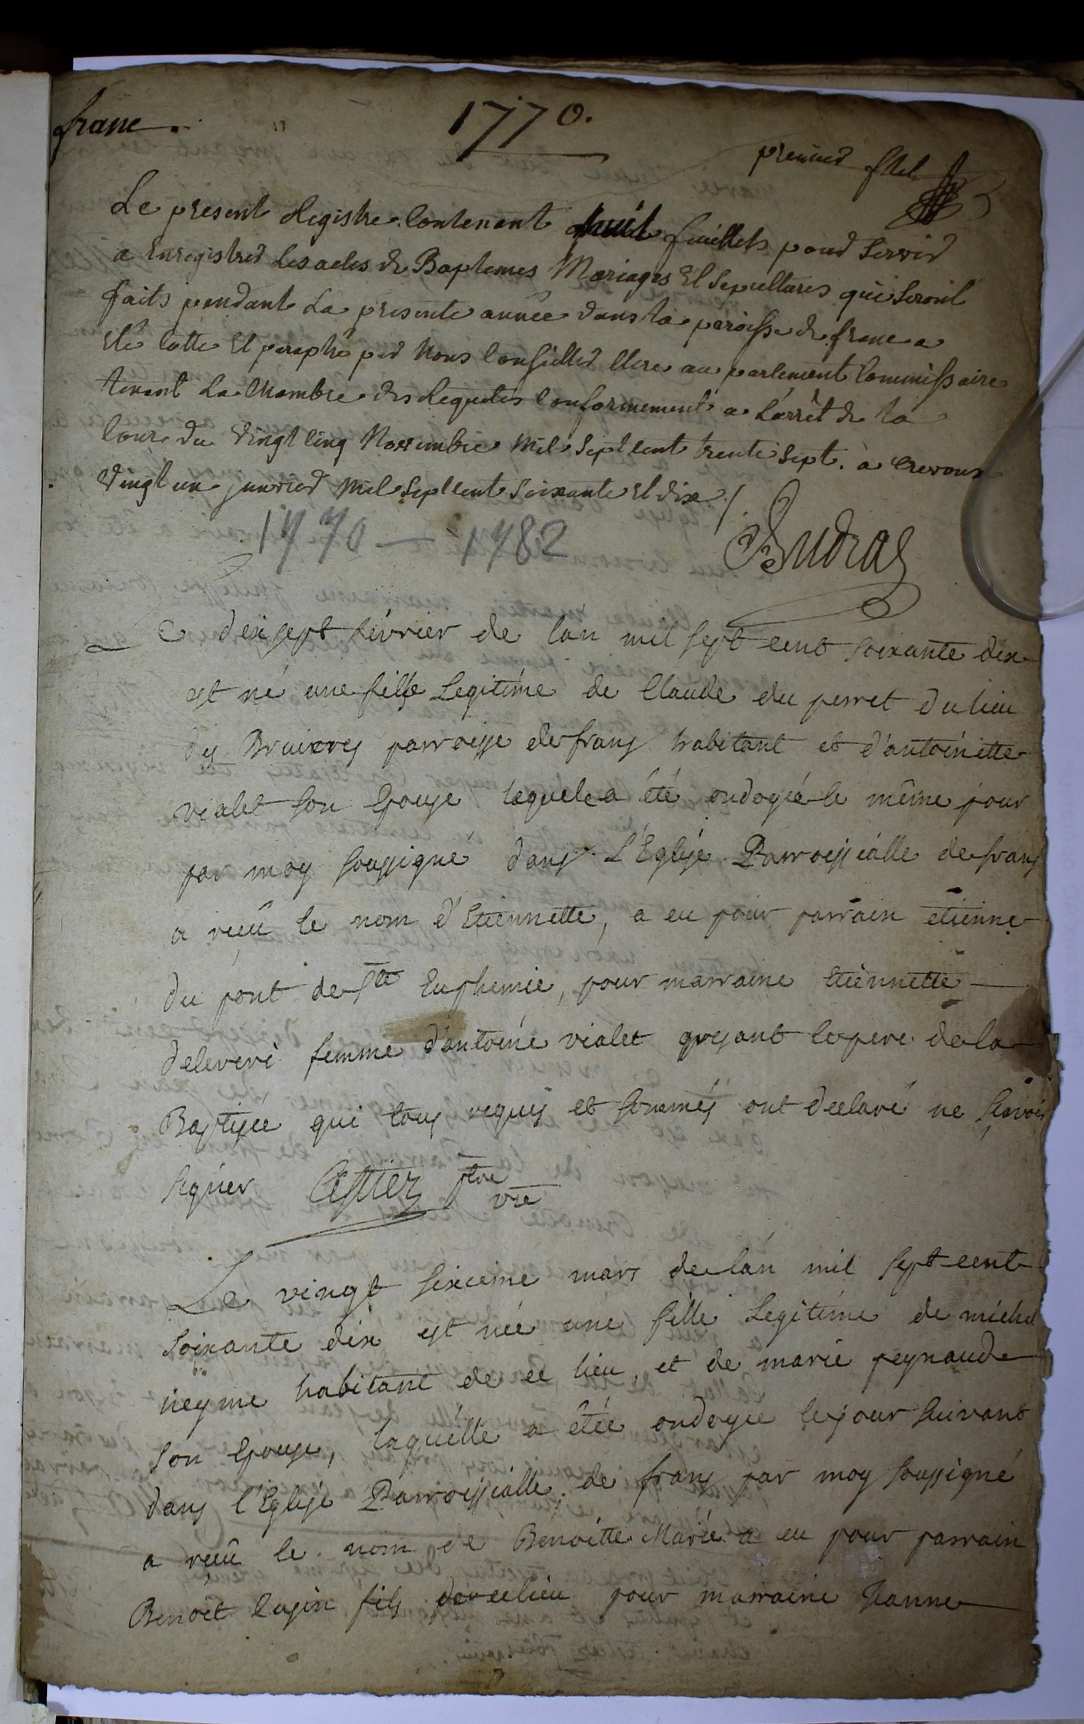 franc.
1770.
premier f.llet
Le present Registre Contenant huit fuillets pour Servir
a Enregistrer Les actes de Baptemes Mariages Et Sepultures qui Seront
faits pendant La presente année dans la paroisse de franc a
Eté Cotté Et paraphé par Nous Conseiller Clerc au parlement Commissaire
tenant La Chambre des Requetes Conformement a L'arrêt de la
Cour du Vingt Cinq Novembre Mil Sept Cent trente Sept. à trevoux
Vingt un janvier Mil Sept Cent Soixante Et dix /.
1770 — 1782
Le dix sept février de lan mil sept cent soixante dix
est né une fille Legitime de Claude du perret du lieu
des Bruieres parroisse de frans habitant et d'antoinette
vialet son Epouse laquele a été ondoyée le même jour
par moy soussigné dans L'Eglise Parroissialle de frans
a reçû le nom d'Etiennette, a eu pour parrain etienne
du pont de Ste Euphemie, pour marraine Etiennette
femme d'antoine vialet present le pere de la
Baptisée qui tous requis et sommés ont declaré ne sçavoir
signer ptre
vre
Le vingt sixieme mars de lan mil sept cent
soixante dix est née une fille Legitime de michel
neyme habitant de ce lieu, et de marie peynaud
son Epouse, laquelle a étée ondoyée le jour suivant
dans l'Eglise Parroissialle de frans par moy soussigné
a reçû le nom de Benoitte Marie a eu pour parrain
Benoit fils de ce lieu pour marraine Jeanne